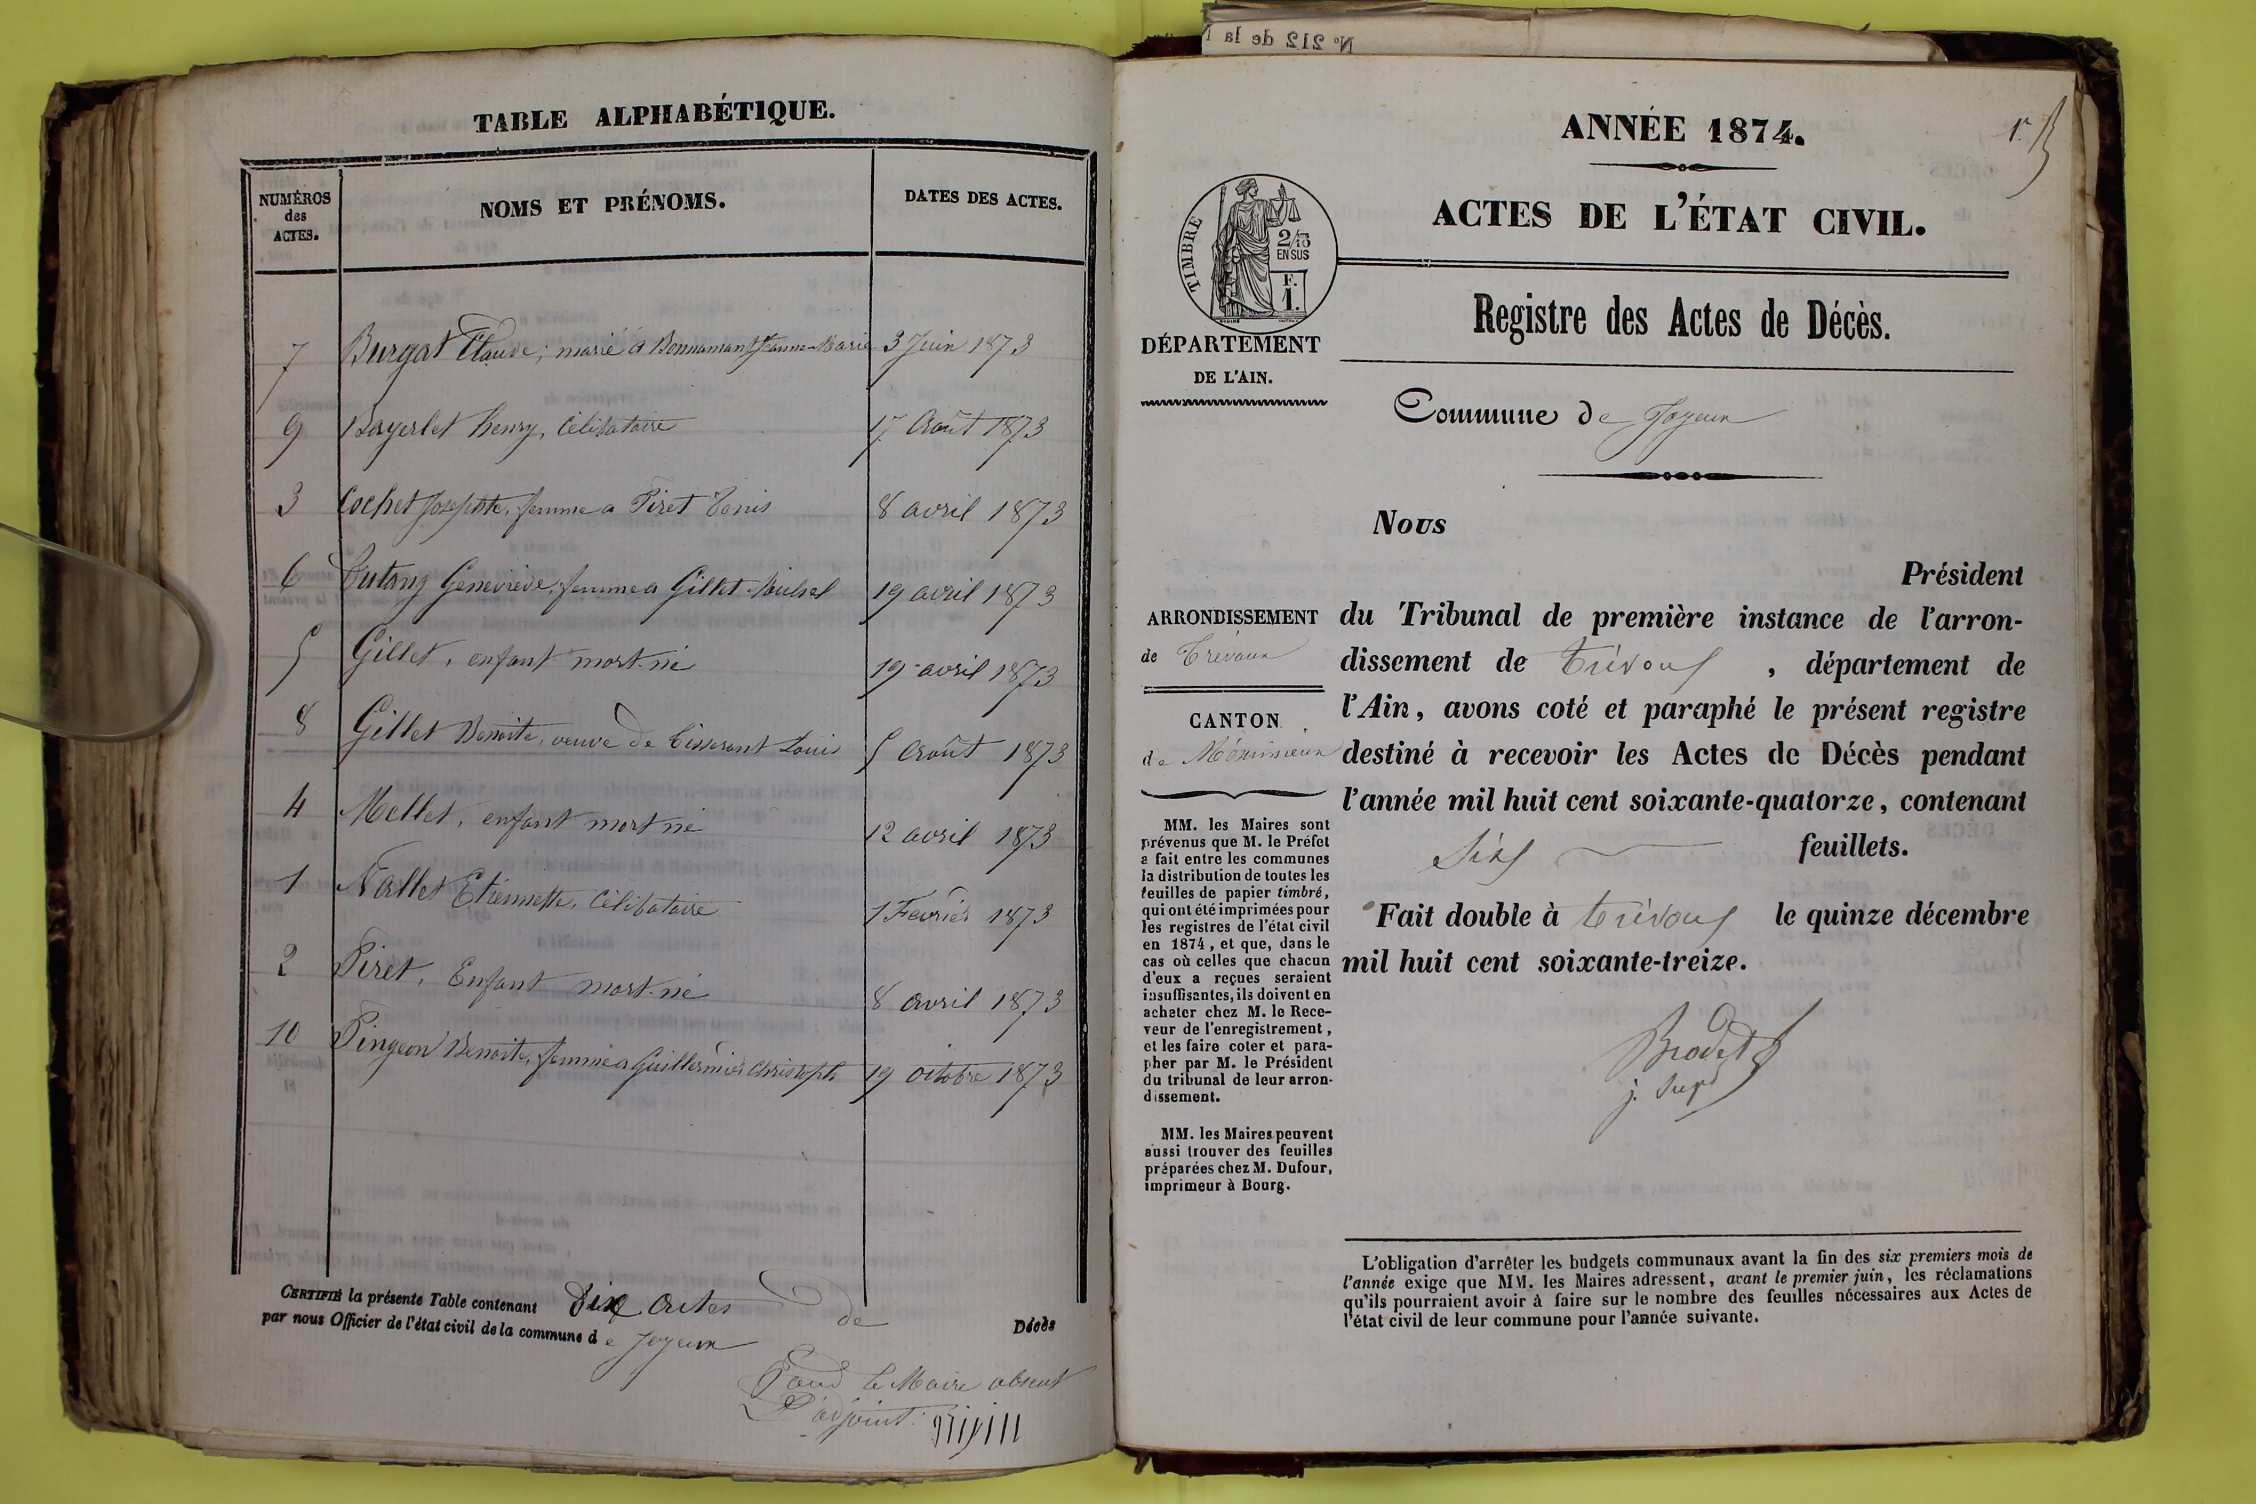 TABLE ALPHABÉTIQUE.
NUMÉROS
des
ACTES.
NOMS ET PRÉNOMS.
DATES DES ACTES.
7 Burgat Claude, marié à Bonnamant Jeanne-Marie 3 Juin 1873
9 Bayerlet henry, Célibataire 17 Août 1873
3 Cochet Josephte, femme a Piret Denis 8 avril 1873
6 Geneviève, femme a Gillet Michel 19 avril 1873
5 Gillet, enfant mort-né 19 avril 1873
8 Gillet Benoite, veuve de Tisserant Louis 5 Août 1873
4 Mellet, enfant mort né 12 avril 1873
1 Nallet Etiennette, Célibataire 1 Février 1873
2 Piret, Enfant mort-né 8 avril 1873
10 Pingeon Benoite, femme a Guillermier Christophe 19 octobre 1873
CERTIFIÉ la présente Table contenant Dix Actes de Décès
par nous Officier de l'état civil de la commune de Joyeux
Pour le Maire absent
L'adjoint
N° 212 de la
ANNÉE 1874.
1er
ACTES DE L'ÉTAT CIVIL.
TIMBRE
2/10
EN SUS
F.
1.
Registre des Actes de Décès.
DÉPARTEMENT
DE L'AIN.
Commune de Joyeux
ARRONDISSEMENT
de Trévoux
CANTON
de Méximieux
MM. les Maires sont
prévenus que M. le Préfet
a fait entre les communes
la distribution de toutes les
feuilles de papier timbré,
qui ont été imprimées pour
les registres de l'état civil
en 1874, et que, dans le
cas où celles que chacun
d'eux a reçues seraient
insuffisantes, ils doivent en
acheter chez M. le Rece-
veur de l'enregistrement,
et les faire coter et para-
pher par M. le Président
du tribunal de leur arron-
dissement.
MM. les Maires peuvent
aussi trouver des feuilles
préparées chez M. Dufour,
imprimeur à Bourg.
Nous
Président
du Tribunal de première instance de l'arron-
dissement de Trévoux, département de
l'Ain, avons coté et paraphé le présent registre
destiné à recevoir les Actes de Décès pendant
l'année mil huit cent soixante-quatorze, contenant
Six feuillets.
Fait double à Trévoux le quinze décembre
mil huit cent soixante-treize.
Brodet
j. supt
L'obligation d'arrêter les budgets communaux avant la fin des six premiers mois de
l'année exige que MM. les Maires adressent, avant le premier juin, les réclamations
qu'ils pourraient avoir à faire sur le nombre des feuilles nécessaires aux Actes de
l'état civil de leur commune pour l'année suivante.